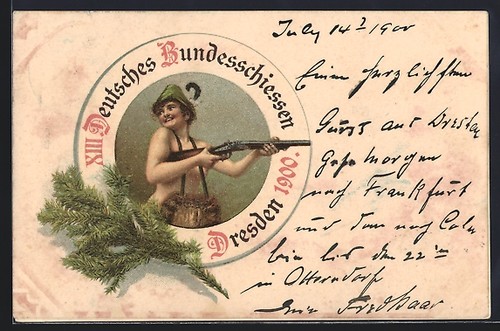 XIII Deutsches Bundesschiessen
Dresden 1900.
July 14 1900
Einen herzlichsten
Gruss aus Dresden
Gehe morgen
nach Frankfurt
und dann nach Coln
bin bis den 22
in Otterndorf